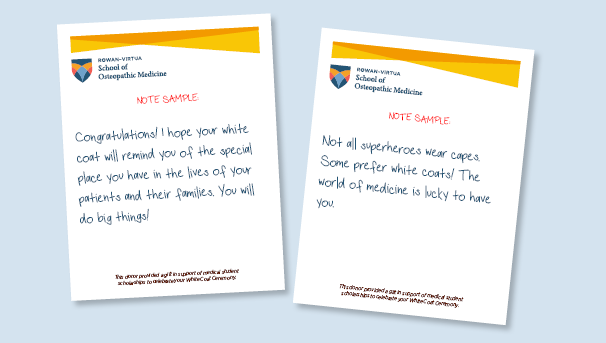 ROWAN-VIRTUA
School of
Osteopathic Medicine
NOTE SAMPLE:
Congratulations! I hope your white
coat will remind you of the special
place you have in the lives of your
patients and their families. You will
do big things!
This donor provided a gift in support of medical student
scholarships to celebrate your White Coat Ceremony.
ROWAN-VIRTUA
School of
Osteopathic Medicine
NOTE SAMPLE:
Not all superheroes wear capes.
Some prefer white coats! The
world of medicine is lucky to have
you.
This donor provided a gift in support of medical student
scholarships to celebrate your White Coat Ceremony.